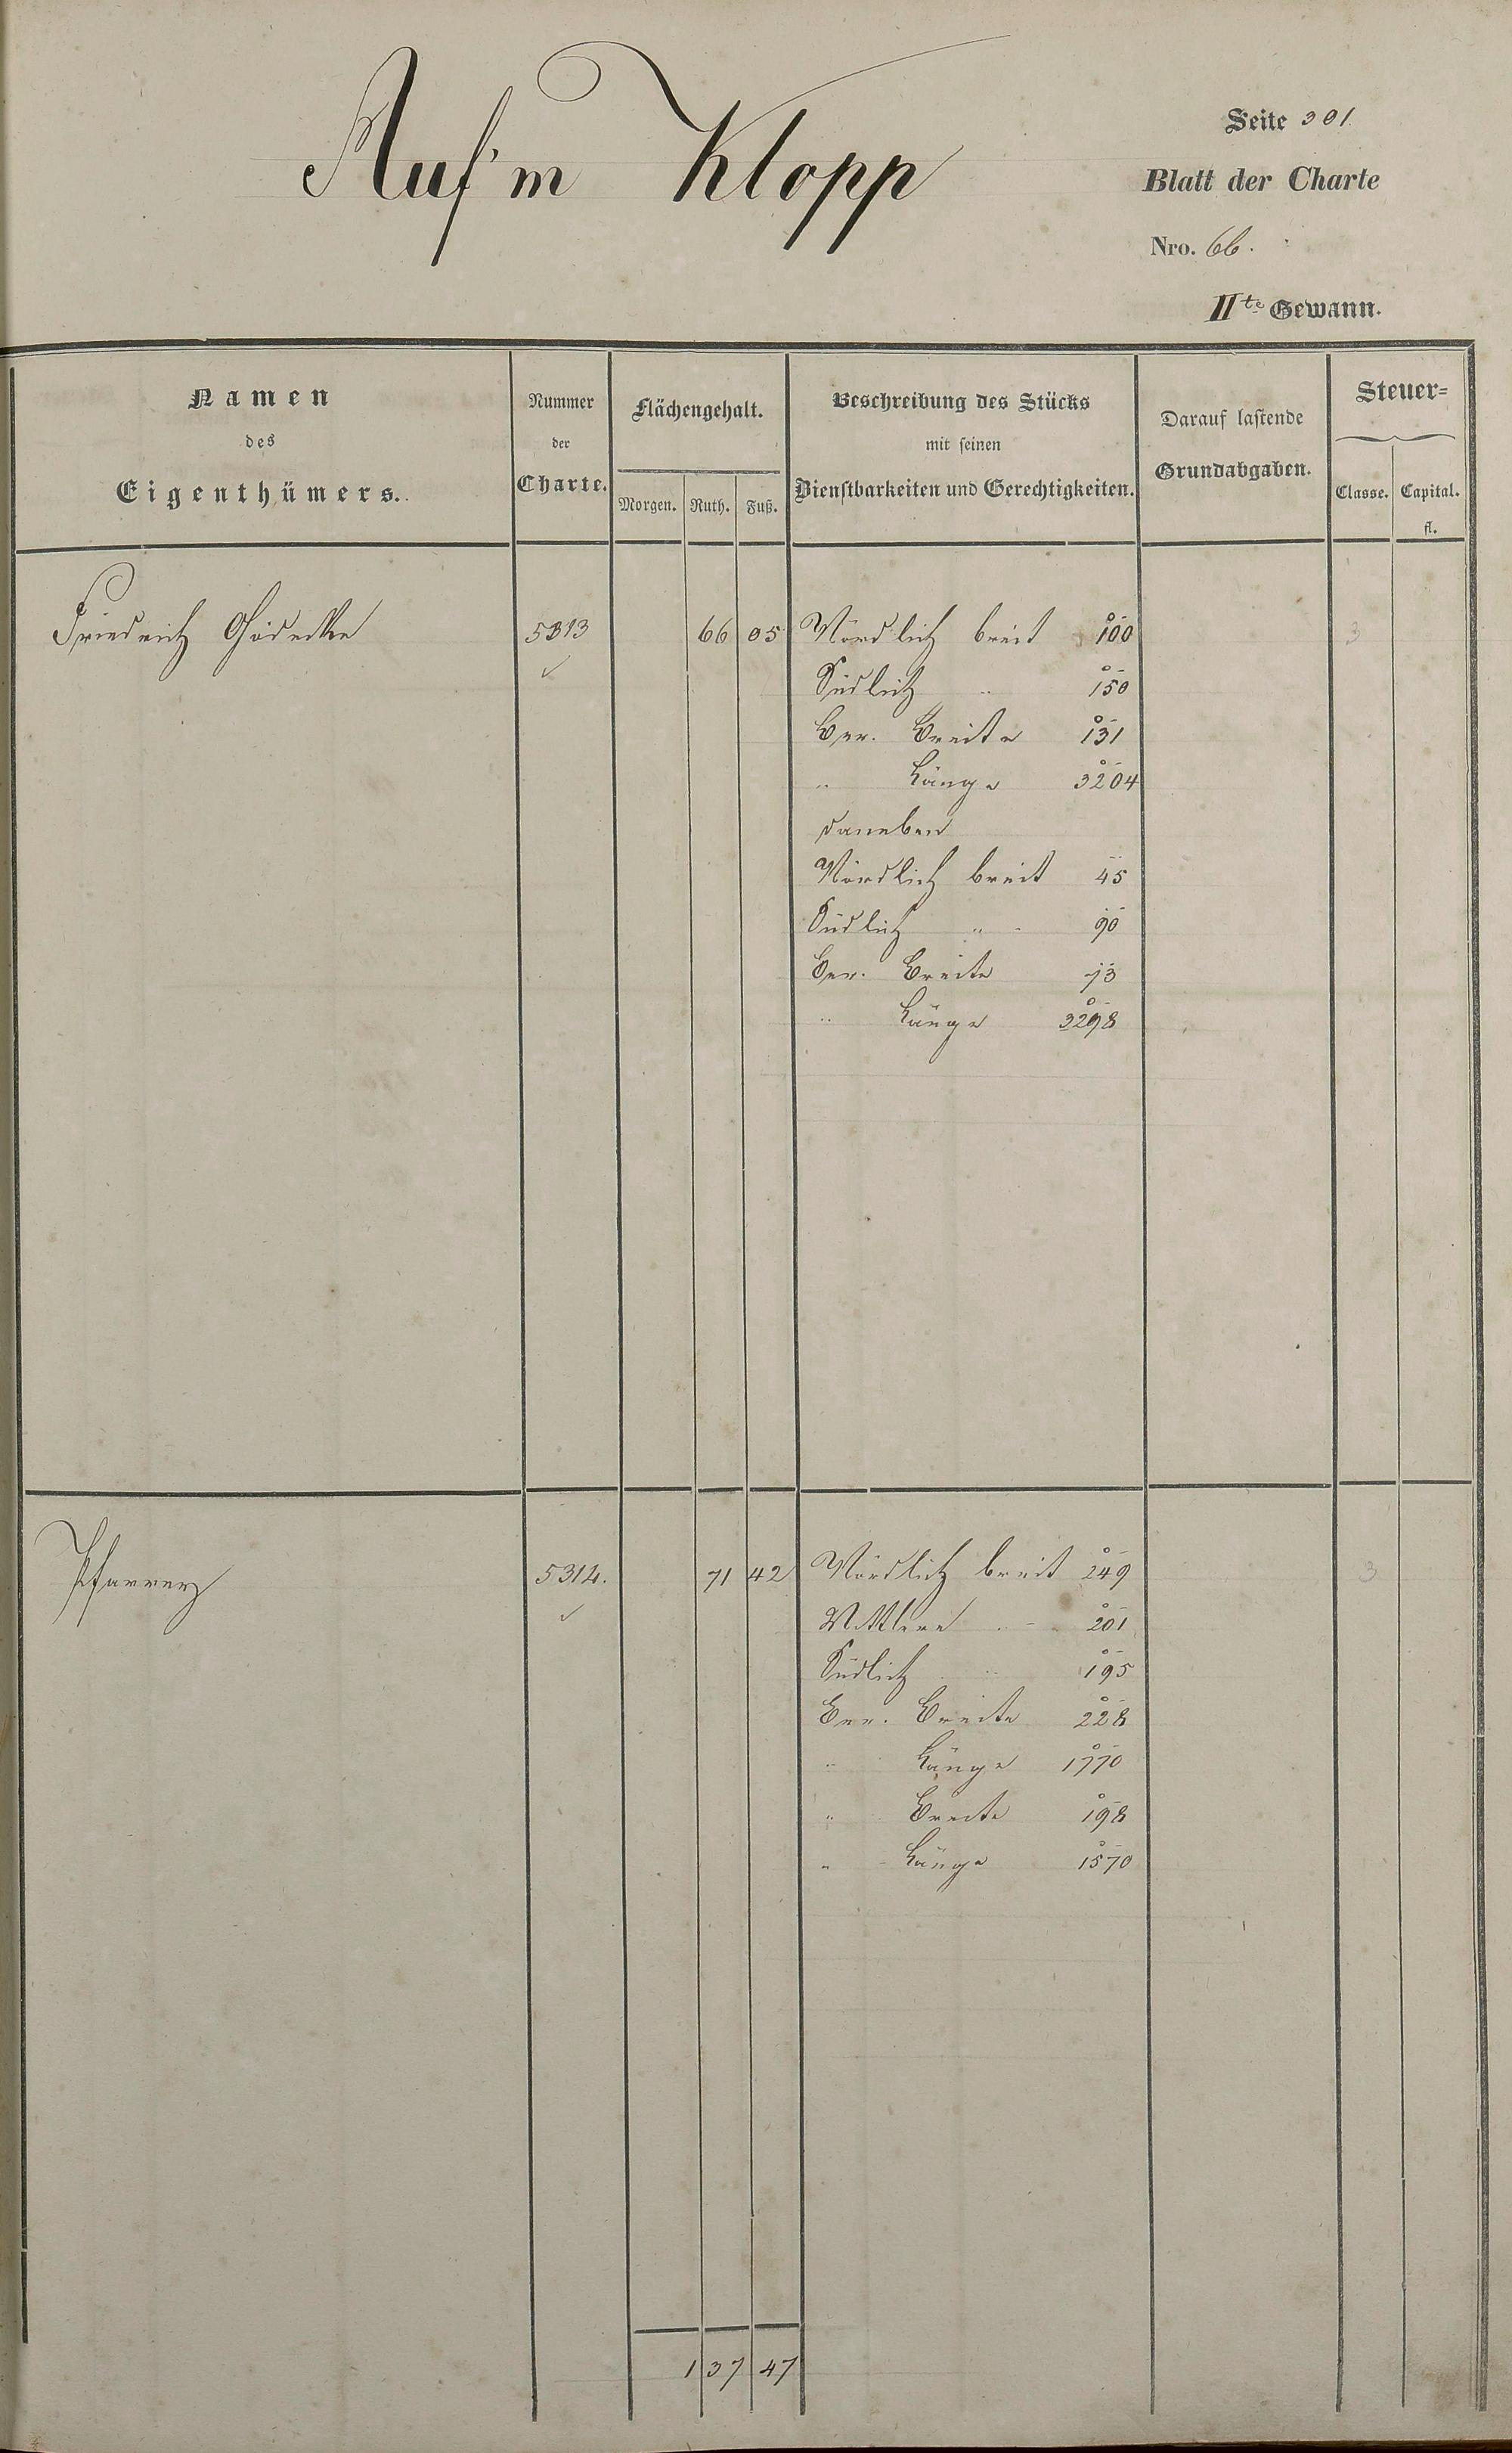 Auf'm Klopp
Seite 301.
Blatt der Charte
Nro. 66.
IIte Gewann.
Namen
des
Eigenthümers.
Nummer
der
Charte.
Flächengehalt.
Morgen. Ruth. Fuß.
Beschreibung des Stücks
mit seinen
Dienstbarkeiten und Gerechtigkeiten.
Darauf lastende
Grundabgaben.
Steuer=
Classe. Capital.
fl.
Friedrich 5313 66 05 Nördlich breit 100 3
Südlich " 150
Ber. Breite 131
" Länge 3204
daneben
Nördlich breit 45
Südlich " 90
Ber. Breite 73
" Länge 3298
Pfarrey 5314. 71 42 Nördlich breit 249 3
Mittlere " 201
Südlich " 195
Ber. Breite 228
" Länge 1770
" Breite 198
" Länge 1570
1 37 47